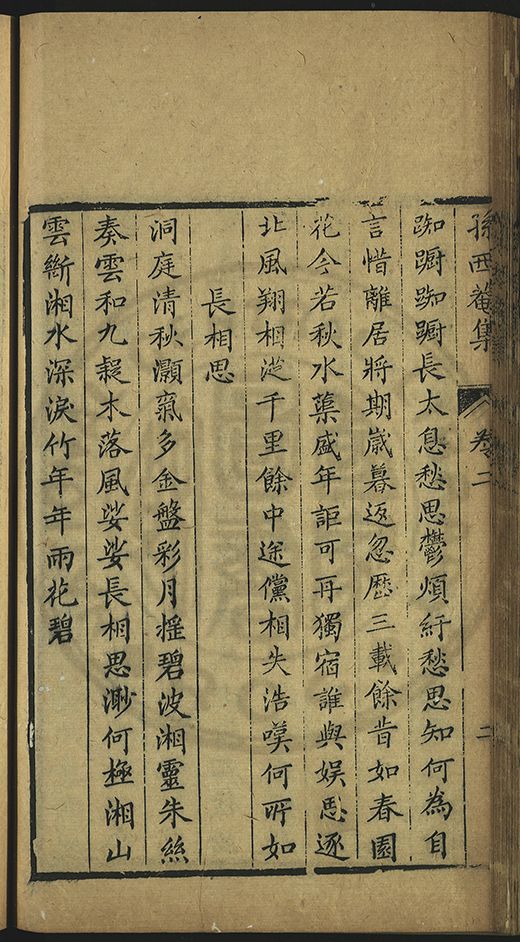 孫西菴集 卷二 二
踟躕踟躕長太息愁思鬱煩紆愁思知何為自
言惜離居將期歲暮返忽歷三載餘昔如春園
花今若秋水蕖盛年詎可再獨宿誰與娱思逐
北風翔相從千里餘中途儻相失浩嘆何所如
長相思
洞庭清秋灝氣多金盤彩月摇碧波湘靈朱絲
奏雲和九疑木落風娑娑長相思渺何極湘山
雲斷湘水深淚竹年年雨花碧